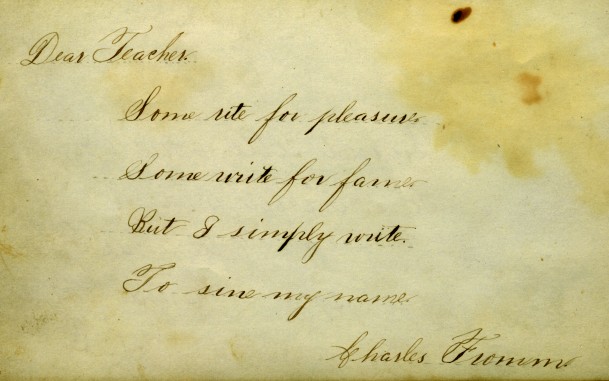 Dear Teacher.
Some rite for pleasure
Some write for fame
But I simply write.
To sine my name
Charles Fromm